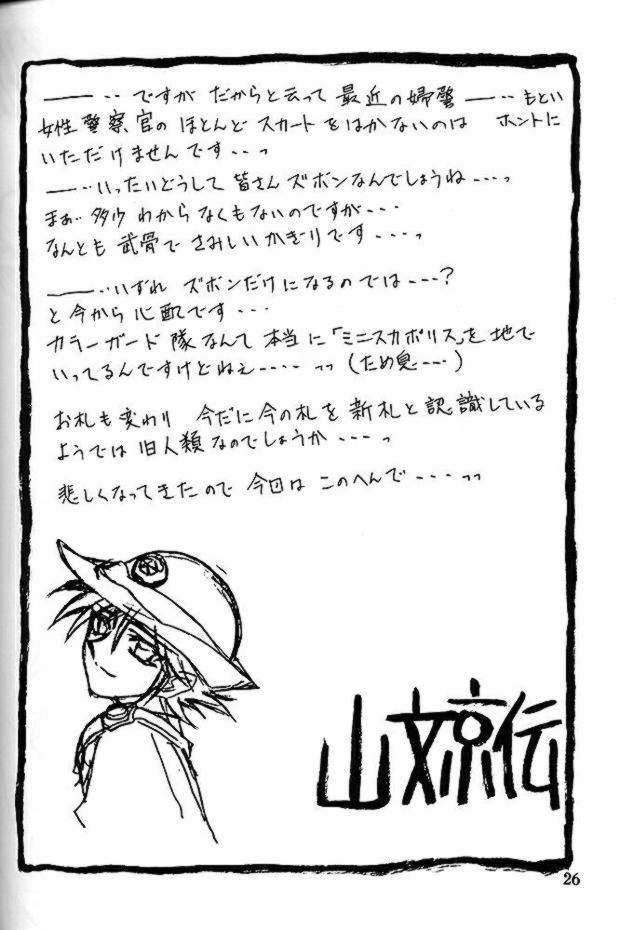 ――‥ですが だからと云って 最近の婦警――‥もとい
女性警察官の ほとんど スカートをはかないのは ホントに
いただけませんです・・っ
――‥いったいどうして 皆さん ズボンなんでしょうね・・・っ
まぁ‥多少 わからなくもないのですが・・・
なんとも 武骨で さみしいかぎりです・・・っ
――‥いずれ ズボンだけになるのでは・・・?
と今から 心配です・・・
カラーガード 隊なんて 本当に「ミニスカポリス」を 地で
いってるんですけどねぇ・・・・ っっ (ため息・・・)
お札も変わり 今だに今の札を 新札と認識している
ようでは 旧人類なのでしょうか・・・っ
悲しくなってきたので 今回は このへんで・・・っっ
山文京伝
26